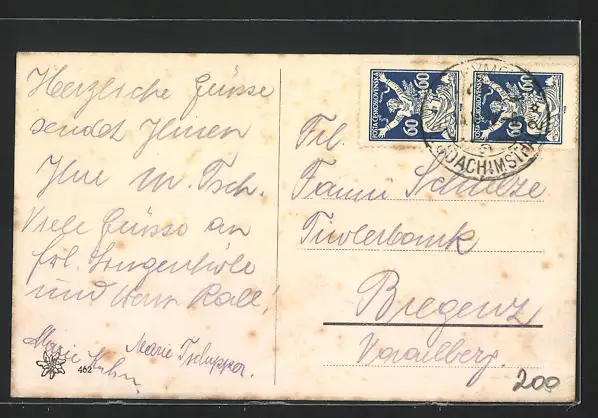 Herzliche Grüsse
sendet Ihnen
Ihre M. Tsch.
Viele Grüsse an
Frl.
und Herrn Rall!
Marie
Marie Tschuppa.
462
POŠTA ČESKOSLOVENSKÁ
60
60
POŠTA ČESKOSLOVENSKÁ
60
60
JÁCHYMOV
JOACHIMSTHAL
Frl.
Fanni Schulze
Tirolerbank
Bregenz
Vorarlberg.
200